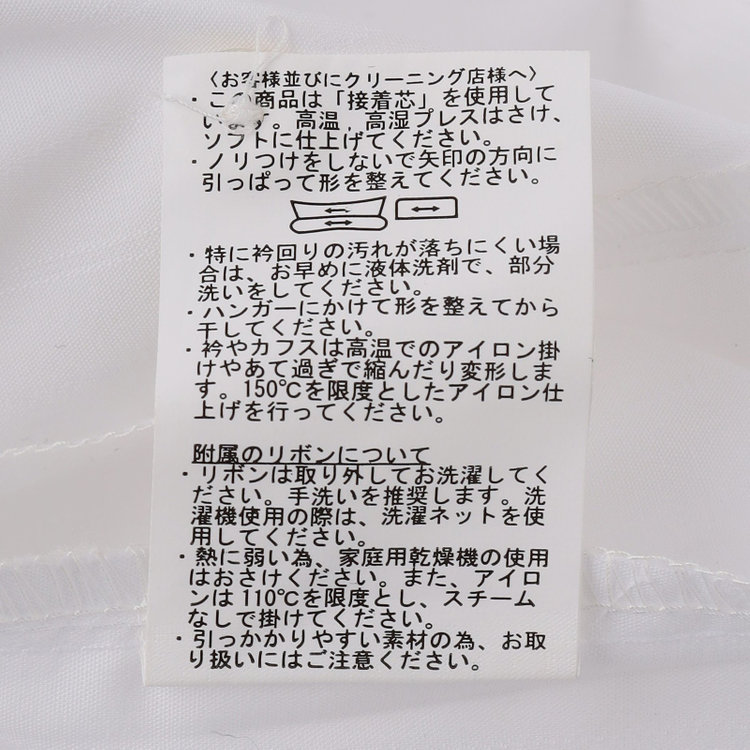 〈お客様並びにクリーニング店様へ〉
・この商品は「接着芯」を使用して
います。高温，高湿プレスはさけ、
ソフトに仕上げてください。
・ノリつけをしないで矢印の方向に
引っぱって形を整えてください。
・特に衿回りの汚れが落ちにくい場
合は、お早めに液体洗剤で、部分
洗いをしてください。
・ハンガーにかけて形を整えてから
干してください。
・衿やカフスは高温でのアイロン掛
けやあて過ぎで縮んだり変形しま
す。150℃を限度としたアイロン仕
上げを行ってください。
附属のリボンについて
・リボンは取り外してお洗濯してく
ださい。手洗いを推奨します。洗
濯機使用の際は、洗濯ネットを使
用してください。
・熱に弱い為、家庭用乾燥機の使用
はおさけください。また、アイロ
ンは110℃を限度とし、スチーム
なしで掛けてください。
・引っかかりやすい素材の為、お取
り扱いにはご注意ください。